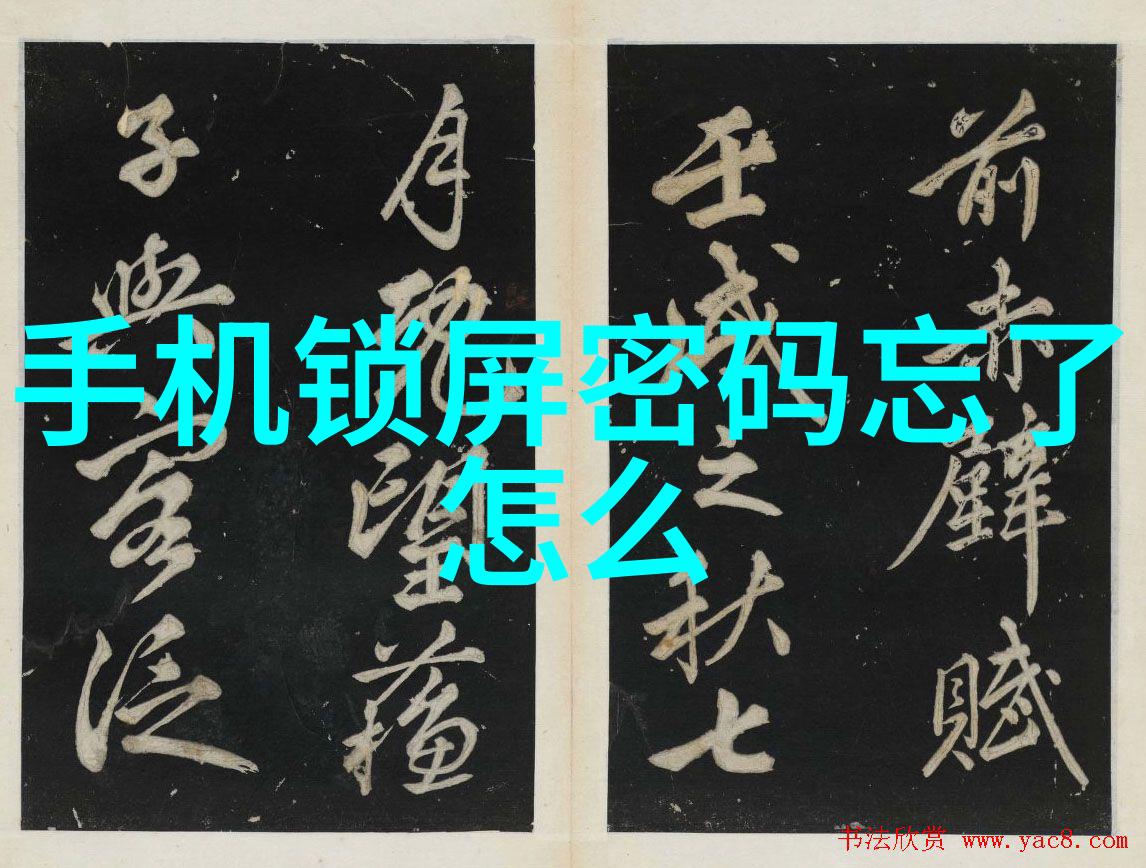 手机锁屏密码忘了
怎么
前赤壁賦
壬戌之秋七
月既望蘓
子與客泛
书法欣赏 www.yac8.com